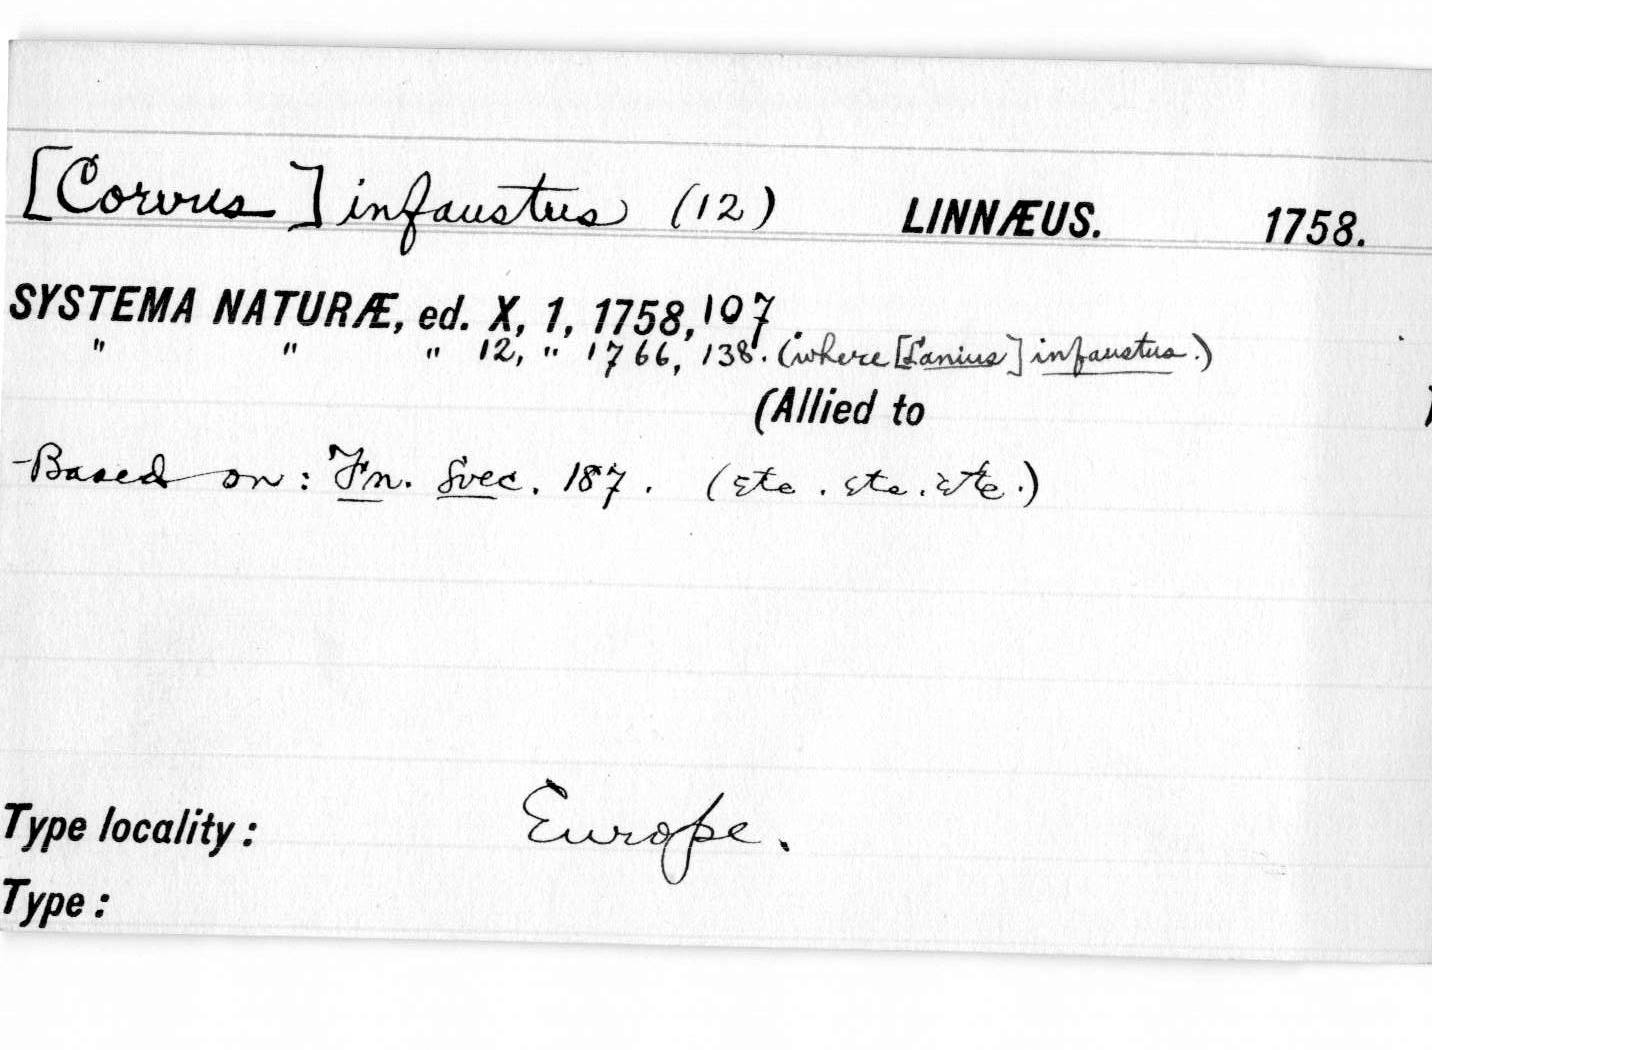 [Corvus] infaustus (12) LINNÆUS. 1758.
SYSTEMA NATURÆ, ed. X, 1, 1758, 107.
" " " 12, " 1766, 138. (where [Lanius] infaustus.)
(Allied to )
Based on: Fn. Svec. 187. (Etc. Etc. Etc.)
Type locality: Europe.
Type: